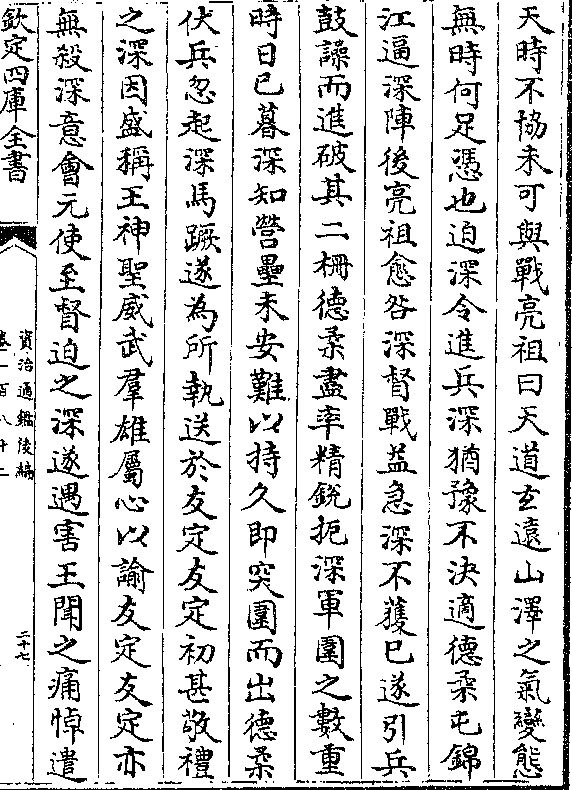 天時不恊未可與戰亮祖曰天道玄遠山澤之氣變態
無時何足憑也迫深令進兵深猶豫不決適德柔屯錦
江逼深陣後亮祖愈咎深督戰益急深不獲已遂引兵
鼓譟而進破其二柵德柔盡率精銳扼深軍圍之數重
時日已暮深知營壘未安難以持久即突圍而出德柔
伏兵忽起深馬蹶遂為所執送於友定友定初甚敬禮
之深因盛稱王神聖威武羣雄屬心以諭友定友定亦
無殺深意會元使至督迫之深遂遇害王聞之痛悼遣
欽定四庫全書
資治通鑑後編
卷一百八十二
二十七